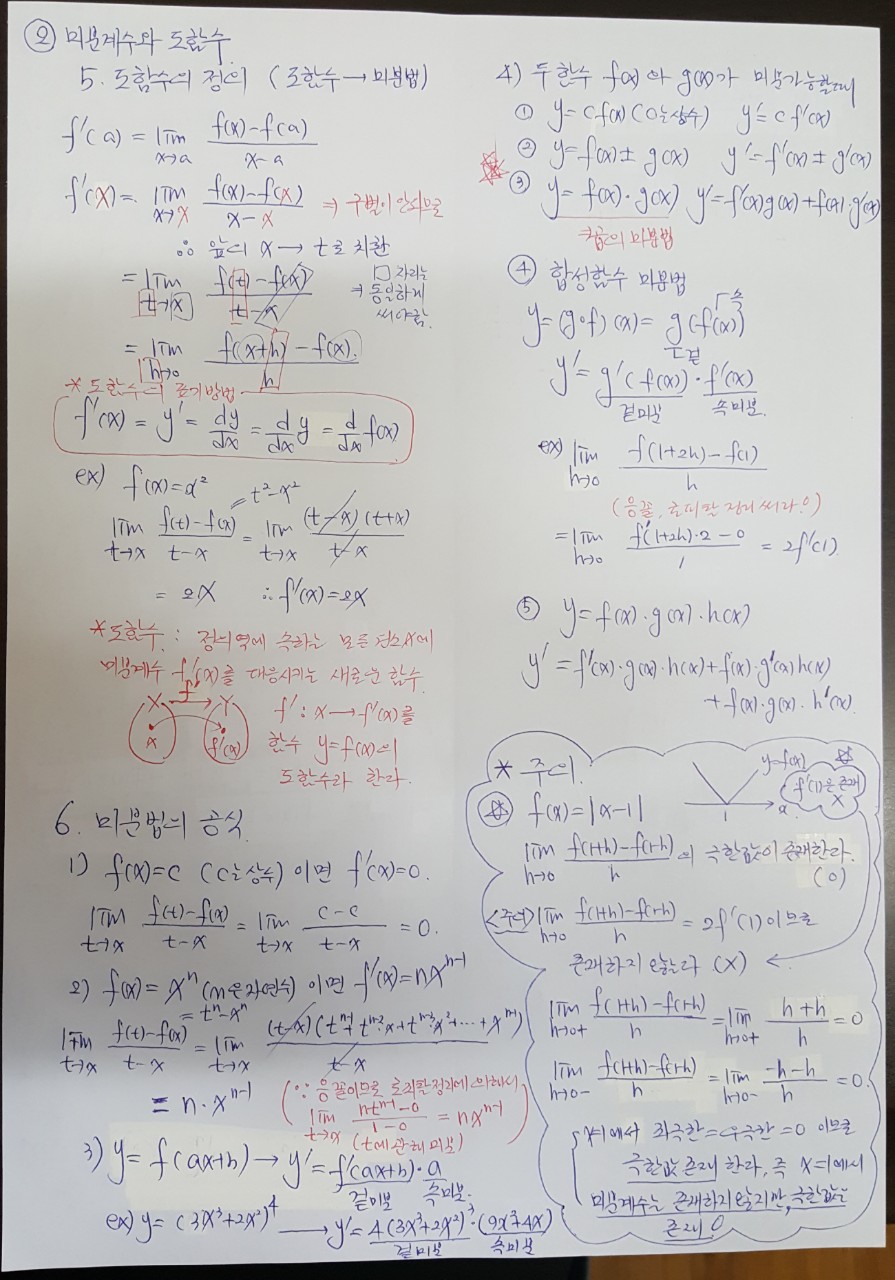 ② 미분계수와 도함수
5. 도함수의 정의 (도함수 → 미분법)
f'(a) = lim x→a f(x)-f(a) / x-a
f'(x) = lim x→x f(x)-f(x) / x-x ⇒ 구별이 안되므로
∴ 앞의 x → t로 치환
= lim t→x f(t)-f(x) / t-x ⇒ □ 자리는 동일하게 써야함.
= lim h→0 f(x+h)-f(x) / h
* 도함수의 표기방법
f'(x) = y' = dy/dx = d/dx y = d/dx f(x)
ex) f(x)=x²
= t²-x²
lim t→x f(t)-f(x) / t-x = lim t→x (t-x)(t+x) / t-x
= 2x ∴ f'(x)=2x
*도함수 : 정의역에 속하는 모든 원소x에
미분계수 f'(x)를 대응시키는 새로운 함수
X f' → Y
x f'(x)
f' : x → f'(x)를
함수 y=f(x)의
도함수라 한다.
6. 미분법의 공식
1) f(x)=c (c는상수) 이면 f'(x)=0.
lim t→x f(t)-f(x) / t-x = lim t→x c-c / t-x = 0.
2) f(x)=xⁿ (n은자연수) 이면 f'(x)=nxⁿ⁻¹
= tⁿ-xⁿ
lim t→x f(t)-f(x) / t-x = lim t→x (t-x)(tⁿ⁻¹+tⁿ⁻²x+tⁿ⁻³x²+…+xⁿ⁻¹) / t-x
= n·xⁿ⁻¹
(∵ 응꼴이므로 로피탈정리에 의해서
lim t→x ntⁿ⁻¹-0 / 1-0 = nxⁿ⁻¹
(t에 관해 미분)
3) y=f(ax+b) → y'=f'(ax+b)·a
겉미분 속미분.
ex) y=(3x³+2x²)⁴ → y'=4(3x³+2x²)³·(9x²+4x)
겉미분 속미분
4) 두 함수 f(x)와 g(x)가 미분가능할때
① y=cf(x) (c는상수) y'=cf'(x)
② y=f(x)±g(x) y'=f'(x)±g'(x)
③ y=f(x)·g(x) y'=f'(x)g(x)+f(x)·g'(x)
*곱의 미분법
④ 합성함수 미분법
y=(g∘f)(x)=g(f(x))
속
겉
y'=g'(f(x))·f'(x)
겉미분 속미분.
ex) lim h→0 f(1+2h)-f(1) / h
(응꼴, 로피탈 정리 써라!)
= lim h→0 f'(1+2h)·2-0 / 1 = 2f'(1)
⑤ y=f(x)·g(x)·h(x)
y'=f'(x)·g(x)·h(x)+f(x)·g'(x)h(x)
+f(x)·g(x)·h'(x)
* 주의.
y=f(x)
1 x
f'(1)은 존재 X
f(x)=|x-1|
lim h→0 f(1+h)-f(1-h) / h 의 극한값이 존재한다.
(O)
<주의> lim h→0 f(1+h)-f(1-h) / h = 2f'(1) 이므로
존재하지 않는다 (X) ←
lim h→0+ f(1+h)-f(1-h) / h = lim h→0+ h+h / h = 0
lim h→0- f(1+h)-f(1-h) / h = lim h→0- -h-h / h = 0.
x=1에서 좌극한=우극한=0 이므로
극한값 존재 한다, 즉 x=1에서
미분계수는 존재하지 않지만, 극한값은
존재 O